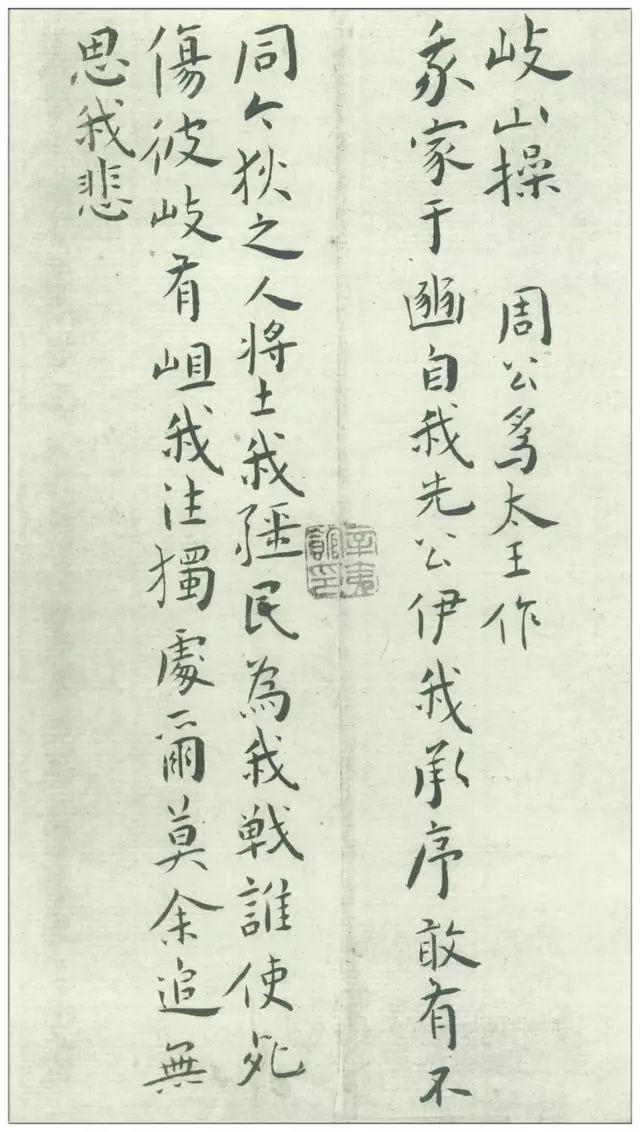 岐山操 周公為太王作
我家于豳自我先公伊我承序敢有不
同今狄之人将土我疆民為我戦誰使死
傷彼岐有岨我往獨處爾莫余追無
思我悲